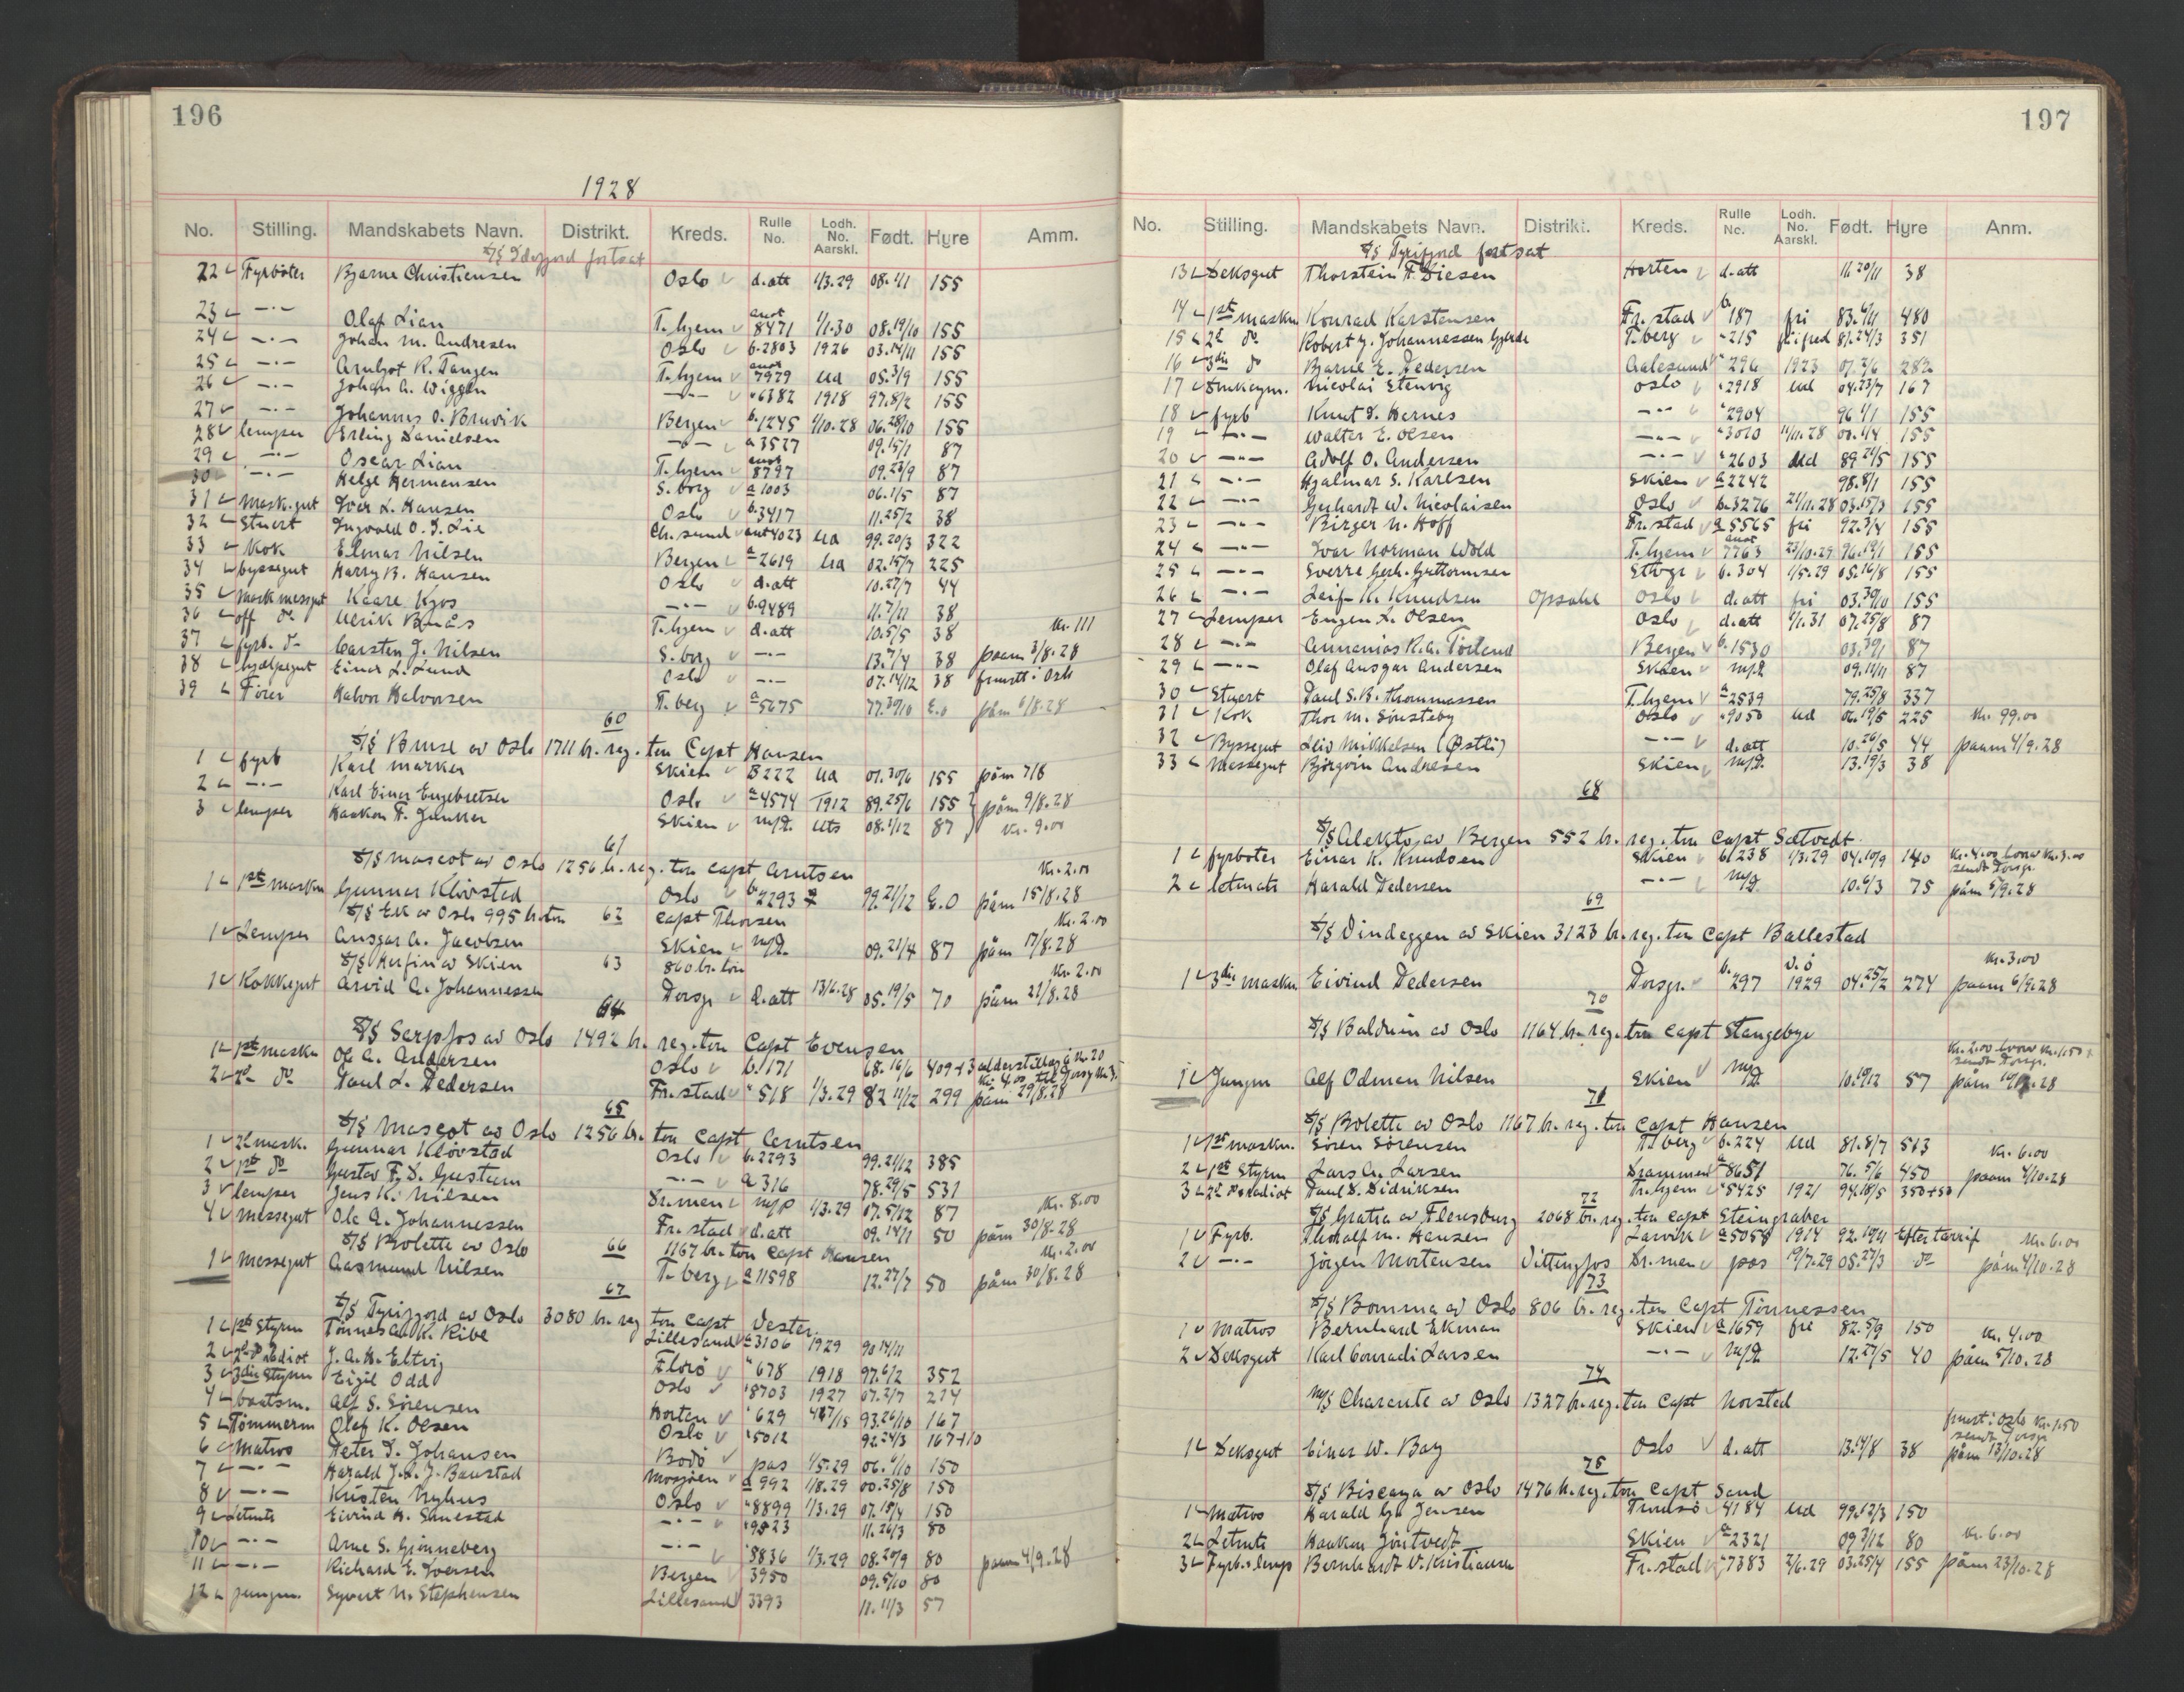 196
1928
No. Stilling. Mandskabets Navn. Distrikt. Kreds. Rulle No. Lodh. No. Aarskl. Født. Hyre Amm.
S/S Idefjord fortsat
22 Fyrböter Bjarne Christiensen Oslo d.att 1/3.29 08.4/1 155
23 —·— Olaf Lian T.hjem anot 8471 1/1.30 08.19/10 155
24 —·— Johan M. Andresen Oslo b.2803 1926 03.14/11 155
25 —·— Arnljot R. Tangen T.hjem anot 7979 Ud 05.3/9 155
26 —·— Johan A. Wiggen —·— 6382 1918 97.8/2 155
27 —·— Johannes O. Bruvik Bergen b.1245 1/10.28 06.28/10 155
28 lemper Erling Danielsen —·— a 3527 09.15/1 87
29 —·— Oscar Lian T.hjem anot 8797 09.23/9 87
30 —·— Helge Hermansen S.borg a 1003 06.1/5 87
31 Mask.gut Iver L. Hansen Oslo b.3417 11.25/2 38
32 Stuert Ingvald O. J. Lie Ch.sund ant 4023 Ud 99.20/3 322
33 Kok Elmar Nilsen Bergen a 2619 Ud 02.15/7 225
34 byssegut Harry B. Hansen Oslo d.att 10.27/7 44
35 Mask messegut Kaare Kjos —·— b.9489 11.7/11 38
36 off do Ulrik Bmås T.hjem d.att 10.5/5 38 Kr. 111
37 fyrb. do Carsten J. Nilsen S.borg —·— 13.7/4 38 paam 3/8.28
38 hjælpegut Einar L. Lund Oslo —·— 07.14/12 38 frmstt i Oslo
39 Förer Halvor Halvorsen T.berg a 5675 77.30/10 E.o påm 6/8.28
60
S/S Bruse av Oslo 1711 br.reg.ton Capt Hansen
1 fyrb Karl Marker Skien B222 Ud 01.30/6 155 påm 7/8
2 —·— Karl Einar Engebretsen Oslo a 4574 1912 89.25/6 155 påm 9/8.28
3 lemper Haakon F. Junker Skien m/p. Uts 08.1/12 87 Kr. 9.00
61
S/S Mascot av Oslo 1256 br.reg.ton Capt Arntsen Kr. 2.00
1 1ste maskn Gunnar Klövstad Oslo b.2293 99.21/12 E.O påm 15/8.28
S/S Ek av Oslo 995 br.ton 62 Capt Thorsen Kr. 2.00
1 Lemper Ansgar A. Jacobsen Skien m/p. 09.21/4 87 påm 17/8.28
S/S Herfin av Skien 63 860 br.ton Kr. 2.00
1 Kokkegut Arvid A. Johannessen Porsgr d.att 13/6.28 05.19/5 70 påm 21/8.28
64
S/S Sarpfos av Oslo 1492 br. reg.ton Capt Evensen
1 1ste maskn Ole A. Andersen Oslo b.171 68.16/6 409+3 alderstillæg à Kr. 20
2 2d do Paul L. Pedersen Fr.stad 518 1/3.29 82 11/12 299 påm 29/8.28
65
S/S Mascot av Oslo 1256 br. ton Capt Arntsen
1 2d mask. Gunnar Klövstad Oslo b.2293 99.21/12 385
2 1ste do Gustav F. D. Gustam —·— a 316 78.29/5 531
3 lemper Jens K. Nilsen Dr.men m/p 1/3.29 07.5/12 87 Kr. 8.00
4 Messegut Ole A. Johannessen Fr.stad d.att 09.14/1 50 påm 30/8.28
S/S Bolette av Oslo 66 1167 br.ton Capt Hansen Kr. 2.00
1 Messegut Aasmund Nilsen T.berg a 11598 12.27/7 50 påm 30/8.28
67
S/S Tyrifjord av Oslo 3080 br.reg ton Capt Vester
1 1ste Styrm Tönnes A. K. Ribe Lillesand a 3106 1929 90 14/11
2 2d & radiot J. A. H. Eltvig Florö 678 1918 97.6/2 352
3 3die Styrm Eigil Odd Oslo 8703 1927 07.2/7 274
4 baatsm. Alf S. Sörensen Horten 629 467/15 93.26/10 167
5 Tömmerm Olaf K. Olsen Oslo 5012 92.24/3 167+10
6 Matros Peter D. Johansen Bodö pas 1/5.29 06.4/10 150
7 —·— Harald J. L. J. Baustad Mosjöen a 992 1/8.29 00.25/8 150
8 —·— Kristen Nyhus Oslo 8899 1/3.29 07.18/4 150
9 Letmts Eivind H. Sanestad —·— 9823 11.26/3 80
10 —·— Arne S. Grönneberg —·— 3836 1/3.29 08.20/9 80 paam 4/9.28
11 —·— Richard E. Iversen Bergen 3950 09.5/10 80
12 jungm. Syvert N. Stephensen Lillesand 3393 11.11/3 57
197
No. Stilling. Mandskabets Navn. Distrikt. Kreds. Rulle No. Lodh. No. Aarskl. Født. Hyre Anm.
S/S Tyrifjord fortsat
13 Deksgut Thorstein F. Diesen Horten d.att 11.20/11 38
14 1ste maskn Konrad Karstensen Fr.stad b.187 fri 83.6/11 480
15 2d do Robert J. Johannessen Gjerde T.berg 215 81.24/3 351
16 3die do Bjarne E. Pedersen Aalesund 296 1923 07.2/6 282
17 Donkeym. Nicolai Stenvig Oslo 2918 Ud 04.23/7 167
18 fyrb Knut D. Hernes —·— 2904 96.1/1 155
19 —·— Walter E. Olsen —·— 3020 11/11.28 00.1/4 155
20 —·— Adolf O. Andersen —·— 2603 Ud 89.21/5 155
21 —·— Hjalmar S. Karlsen Skien a 2242 98.8/1 155
22 —·— Gerhardt W. Nicolaisen Oslo b.3276 21/11.28 03.15/3 155
23 —·— Birger N. Hoff Fr.stad a 5565 fri 92.3/4 155
24 —·— Ivar Norman Wold T.hjem anot 7763 23/10.29 96.19/1 155
25 —·— Sverre Gerh. Guttormsen Sttvgr b.304 1/5.29 05.16/8 155
26 —·— Leif K. Knudsen Opsahl Oslo d.att fri 03.30/10 155
27 Lemper Eugen L. Olsen Oslo d.att 1/1.31 07.25/8 87
28 —·— Annanias R. A. Torlund Bergen b.1530 03.30/1 87
29 —·— Olaf Ansgar Andersen Skien m/p. 09.11/11 87
30 Stuert Paul S. B. Thommassen T.hjem a 2539 79.25/8 337
31 Kok Thor M. Sönsteby Oslo 9050 Ud 06.19/5 225 Kr. 99.00
32 Byssegut Leiv Mikkelsen (Östli) —·— d.att 10.26/5 44 paam 4/9.28
33 Messegut Björgvin Andresen Skien m/p. 13.19/3 38
68
S/S Alekto av Bergen 552 br.reg.ton Capt Sætvedt
1 fyrböter Einar K. Knudsen Skien b.238 1/3.29 04.10/9 140 Kr. 4.00 hvorav Kr. 3.00 sendt Porsgr.
2 letmats Harald Pedersen —·— m/p. 10.6/3 75 påm 5/9.28
69
S/S Vindeggen av Skien 3123 br.reg.ton Capt Ballestad
Kr. 3.00
1 3die maskn Eivind Pedersen Porsgr. b.297 v.ö 1929 04.25/2 274 paam 6/9.28
70
S/S Balduin av Oslo 1164 br.reg.ton Capt Stangebye
Kr. 2.00 hvorav Kr. 1.50 sendt Porsgr.
1 Jungm Alf Odman Nilsen Skien m/p. 10.10/12 57
71
S/S Bolette av Oslo 1167 br.reg.ton Capt Hansen
1 1ste maskn. Sören Sörensen T.berg b.224 Ud 81.8/7 513 Kr. 6.00
2 1ste Styrm Lars A. Larsen Drammen a 8651 76.5/6 450 paam 4/10.28
3 2d do & radiot Paul D. Didriksen Tr.hjem 5425 1921 94.18/5 350+50
72
S/S Gratia av Flensburg 2068 br.reg.ton Capt Steingraber
1 Fyrb. Thoralf M. Hansen Larvik a 5058 1914 92.19/11 Efter tarrif Kr. 6.00
2 —·— Jörgen Mortensen Vittingfos Dr.men pas 19/7.29 05.27/3 do påm 4/10.28
73
S/S Bomma av Oslo 806 br.reg.ton Capt Tönnessen
1 Matros Bernhard Ekman Skien a 1659 fri 82.5/9 150 Kr. 4.00
2 Deksgut Karl Conradi Larsen —·— m/p. 12.27/5 40 påm 5/10.28
74
M/S Charente av Oslo 1327 br.reg.ton Capt Norstad
frmst i Oslo Kr. 1.50 sendt Porsgr
1 Deksgut Einar W. Bay Oslo d.att 13.14/8 38 påm 13/10.28
75
S/S Biscaya av Oslo 1476 br.reg.ton Capt Sand
1 Matros Harald Gu Jensen Tromsö 4184 Ud 99.12/3 150
2 Letmts Haakon Jöntvedt Skien a 2321 09.3/12 80 Kr. 6.00
3 Fyrb. & lemp Bernhardt V. Kristiansen Fr.stad 7383 2/6.29 03.25/4 155 påm 23/10.28